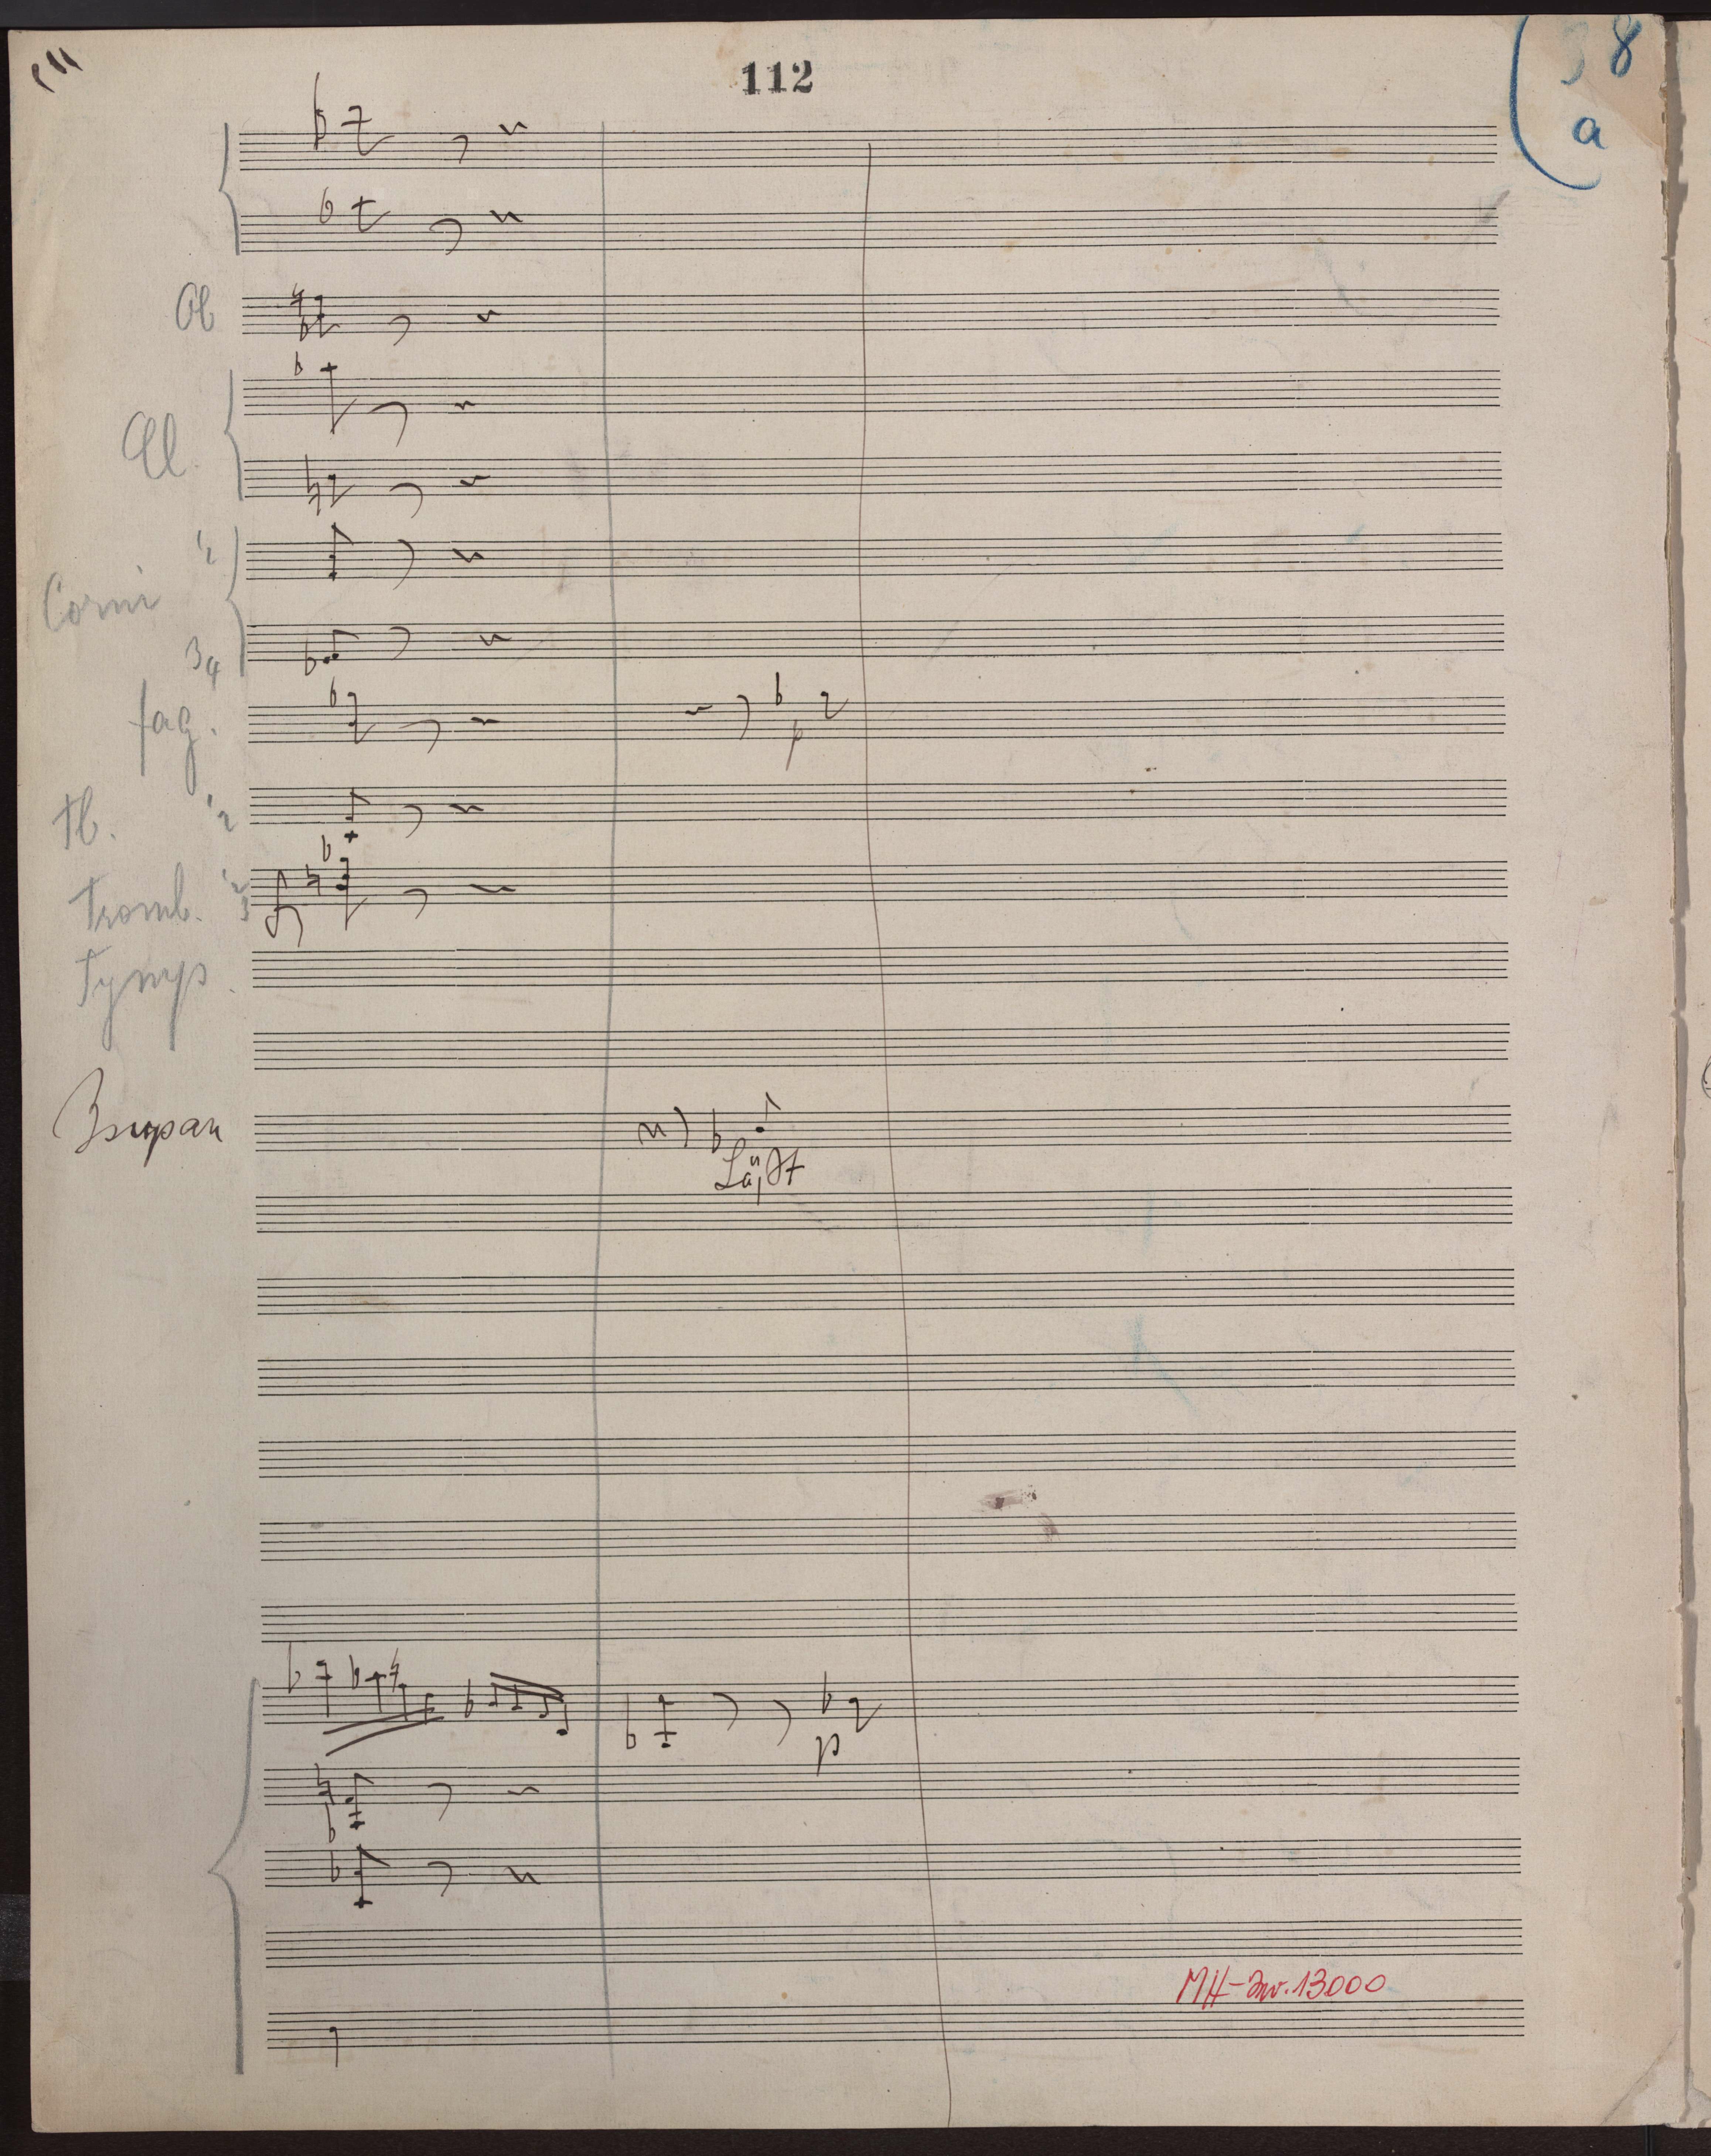 112
38
a
Ob
Cl.
1
2
Corni
3 4
fag.
p
1
2
Tromb.
1
2
3
Tymp.
Zsupan
Läßt
p
MH-Inv. 13000